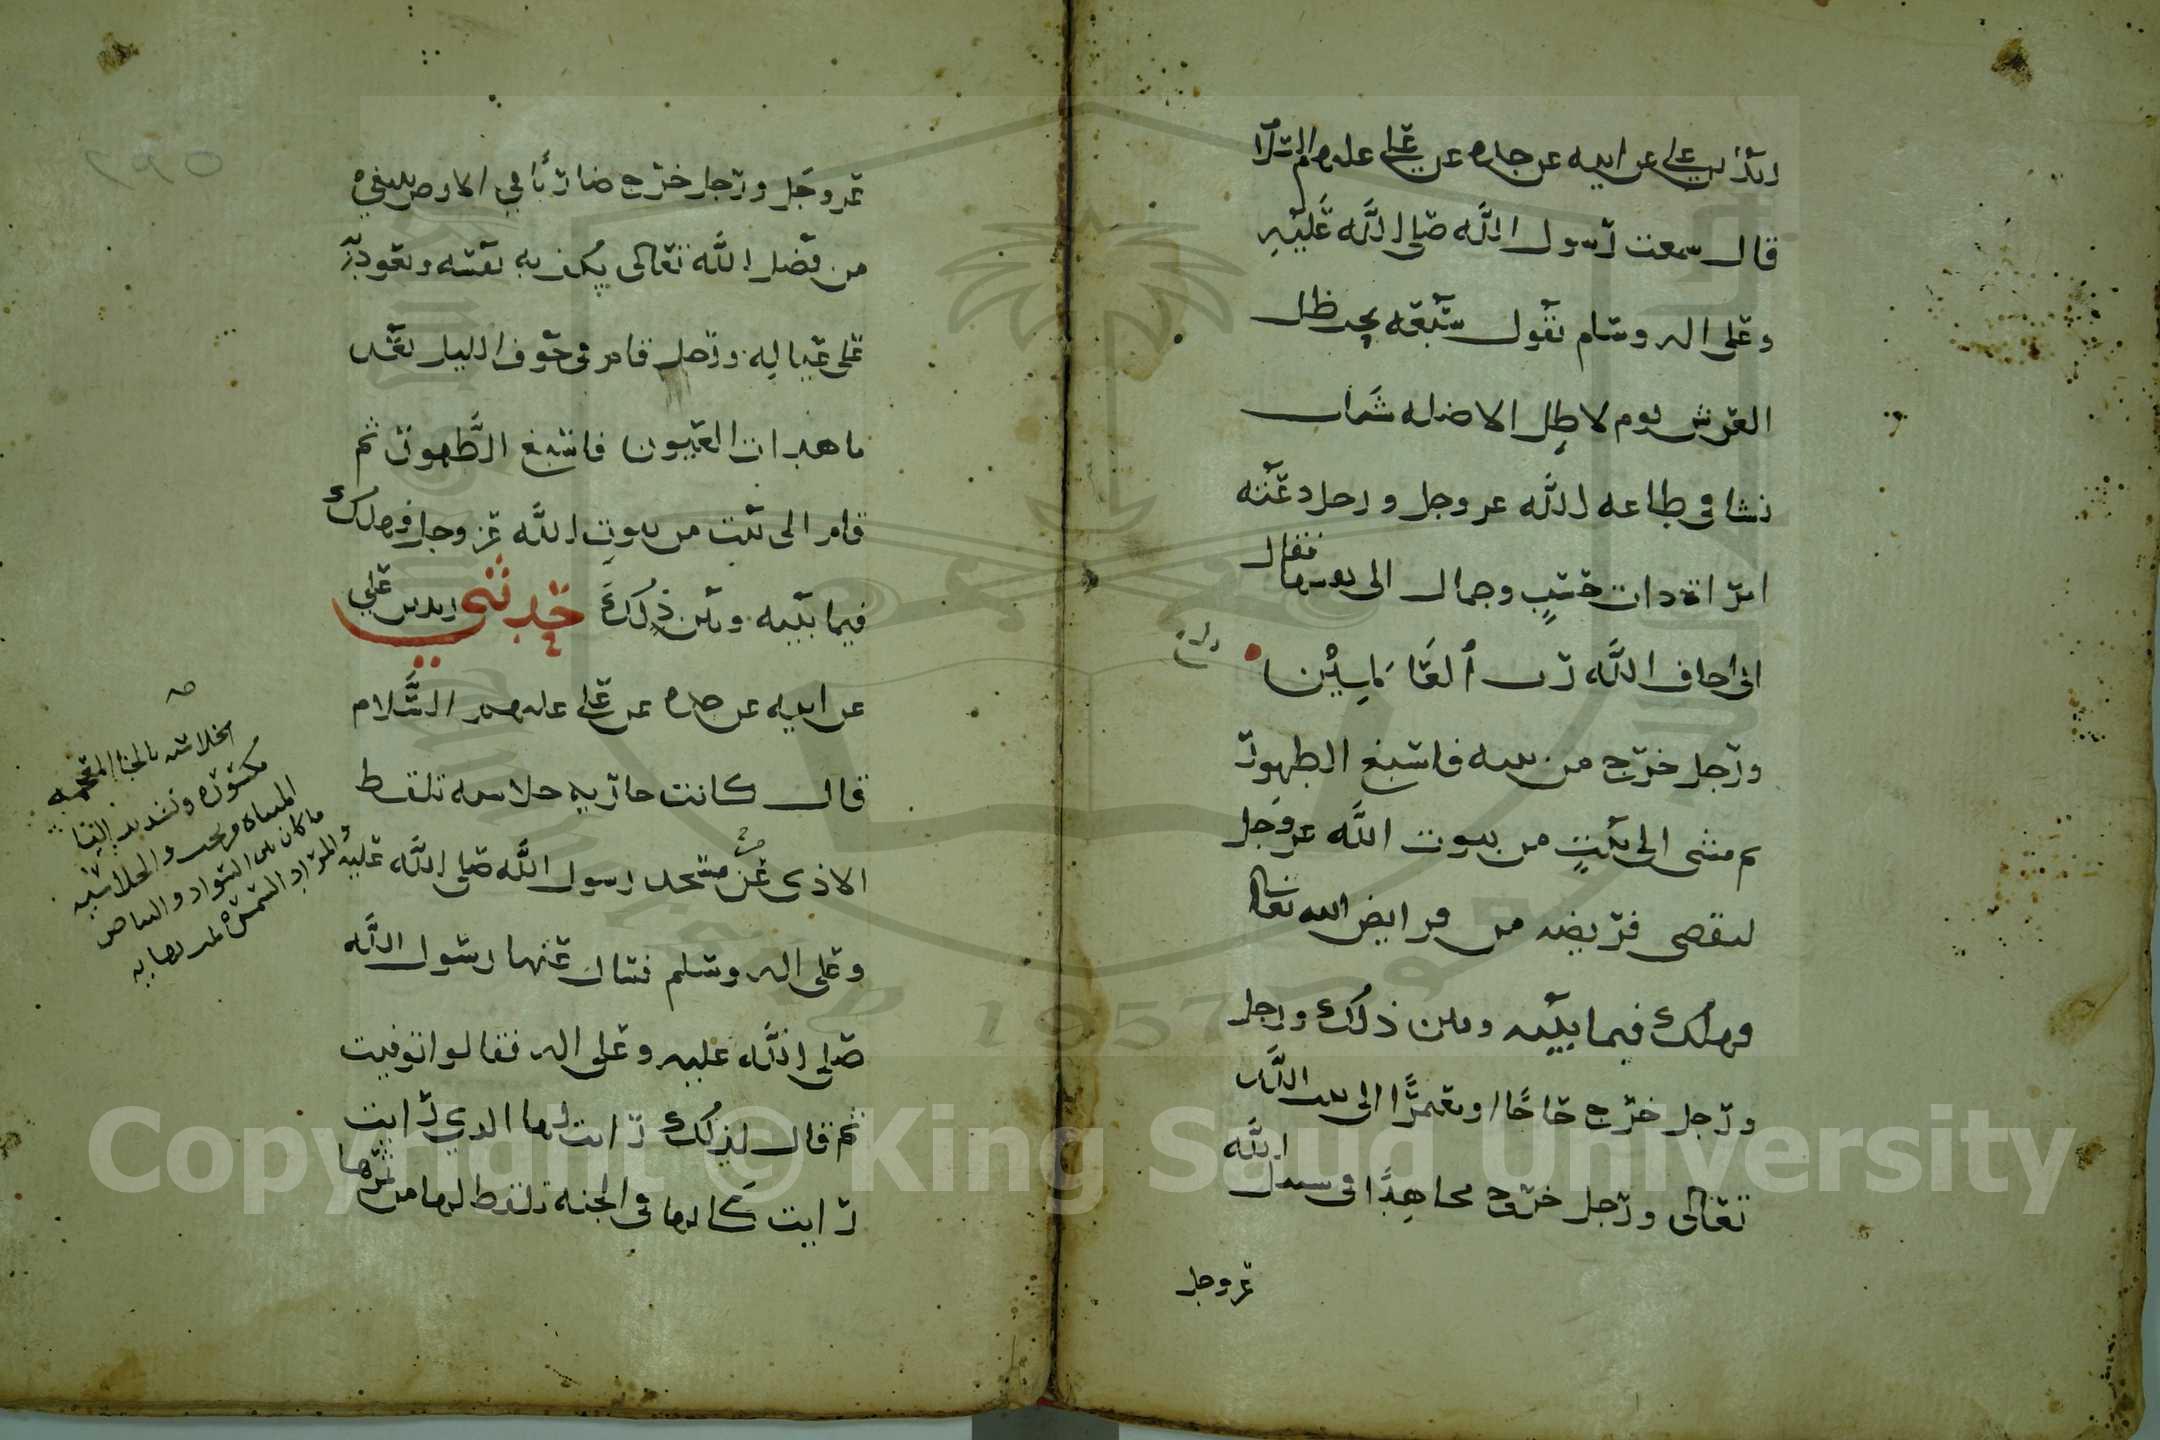 زيد بن علي عن ابيه عن جده عن علي عليهم السلام
قال سمعت رسول الله صلى الله عليه
وعلى اله وسلم يقول سبعه تحت ظل
العرش يوم لا ظل الا ضله شاب
نشا في طاعه الله عز وجل ورجل دعته
امراة ذات حسب وجمال الى نفسها فقال
اني اخاف الله رب العالمين
ورجل خرج من بيته فاسبغ الطهور
ثم مشى الى بيت من بيوت الله عز وجل
ليقضي فريضه من فرايض الله تعالى
فهلك فيما بينه وبين ذلك ورجل
ورجل خرج حاجا او معتمرا الى بيت الله
تعالى ورجل خرج مجاهدا في سبيل الله
عز وجل
عز وجل ورجل خرج ضاربا في الارض يبتغي
من فضل الله تعالى يكف به نفسه ويعود به
على عياله ورجل قام في جوف الليل بعد
ما هدات العيون فاسبغ الطهور ثم
قام الى بيت من بيوت الله عز وجل فهلك
فيما بينه وبين ذلك حدثني زيد بن علي
عن ابيه عن جده عن علي عليهم السلام
قال كانت جاريه خلاسيه تلقط
الاذى عن مسجد رسول الله صلى الله عليه
وعلى اله وسلم فسال عنها رسول الله
صلى الله عليه وعلى اله فقالوا توفيت
ثم قال لذلك رايت لها الذي رايت
رايت كانها في الجنه تلقط لها من ثمرها
الخلاسيه بالخاء المعجمه
مكسوره وتشديد اليا
والخلاسيه
ما كان بين السواد والبياض
٢٩٥
Copyright © King Saud University
1957